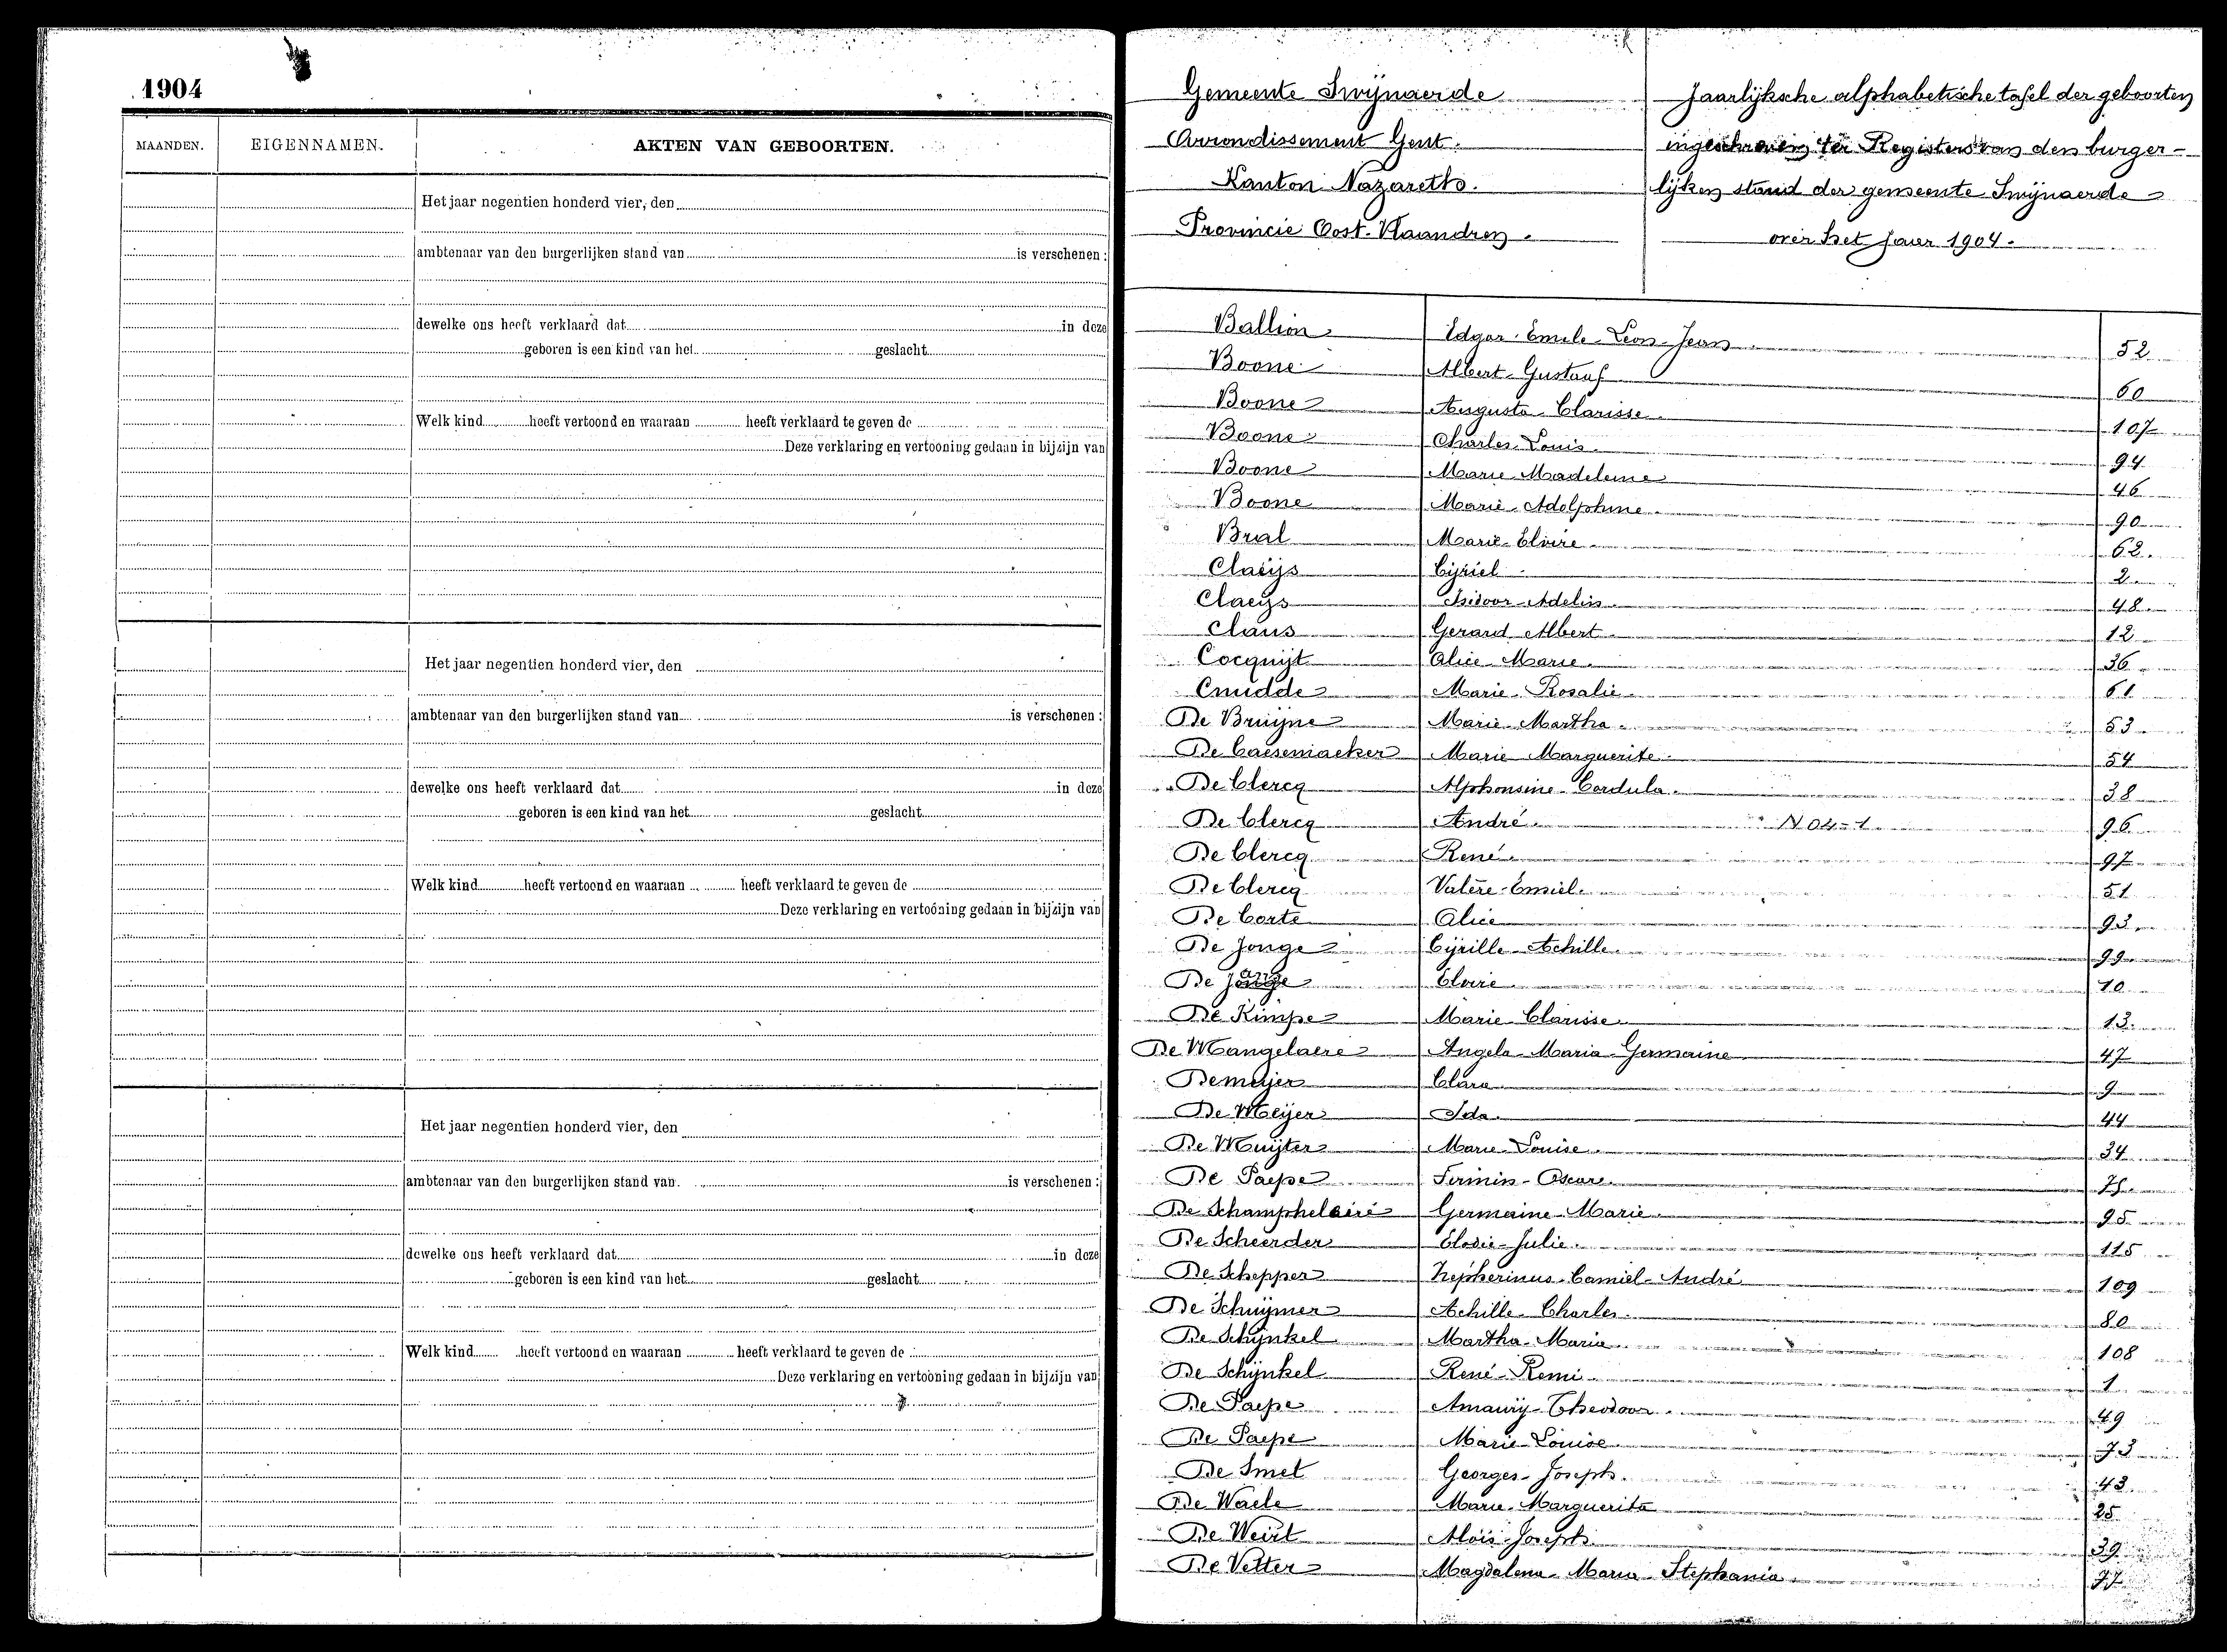 1904
MAANDEN. EIGENNAMEN. AKTEN VAN GEBOORTEN.
Het jaar negentien honderd vier, den
ambtenaar van den burgerlijken stand van is verschenen :
dewelke ons heeft verklaard dat in deze
geboren is een kind van het geslacht
Welk kind heeft vertoond en waaraan heeft verklaard te geven de
Deze verklaring en vertooning gedaan in bijzijn van
Het jaar negentien honderd vier, den
ambtenaar van den burgerlijken stand van is verschenen :
dewelke ons heeft verklaard dat in deze
geboren is een kind van het geslacht
Welk kind heeft vertoond en waaraan heeft verklaard te geven de
Deze verklaring en vertooning gedaan in bijzijn van
Het jaar negentien honderd vier, den
ambtenaar van den burgerlijken stand van is verschenen :
dewelke ons heeft verklaard dat in deze
geboren is een kind van het geslacht
Welk kind heeft vertoond en waaraan heeft verklaard te geven de
Deze verklaring en vertooning gedaan in bijzijn van
Gemeente Swijnaerde
Arrondissement Gent.
Kanton Nazareth.
Provincie Oost-Vlaandren.
Jaarlijksche alphabetische tafel der geboorten
ingeschreven Registers van den burger-
lijken stand der gemeente Swijnaerde
over het jaar 1904.
Ballion Edgar-Emile-Leon-Jean 52
Boone Albert-Gustaaf 60
Boone Augusta Clarisse 107
Boone Charles-Louis 94
Boone Marie Madeleine 46
Boone Marie-Adolphine 90
Bral Marie-Elvire 62
Claeijs Cijriel 2
Claeys Isidoor-Adelin 48
Claus Gerard Albert 12
Cocquijt Alice Marie 36
Cnudde Marie-Rosalie 61
De Bruijne Marie Martha 53
De Caesemaeker Marie Marguerite 54
De Clercq Alphonsine-Cordula 38
De Clercq André N 04-1 96
De Clercq René 97
De Clercq Valère-Emiel 51
De Corte Alice 93
De Jonge Cijrille-Achille 99
De Jonge Elvire 10
De Kimpe Marie-Clarisse 13
De Mangelaere Angela-Maria-Germaine 47
Demeijer Clara 9
De Meijer Ida 44
De Muijter Marie-Louise 34
De Paepe Firmin-Oscar
De Schamphelaire Germaine-Marie 95
De Scheerder Elodie-Julie 115
De Schepper Zepherinus-Camiel-André 109
De Schuijmer Achille-Charles 80
De Schijnkel Martha-Maria 108
De Schijnkel René-Remi 1
De Paepe Amaury-Theodoor 49
De Paepe Marie-Louise 73
De Smet Georges-Joseph 43
De Waele Marie-Marguerite 25
De Weirt Aloïs-Joseph 39
De Vetter Magdalena-Maria-Stephania 77